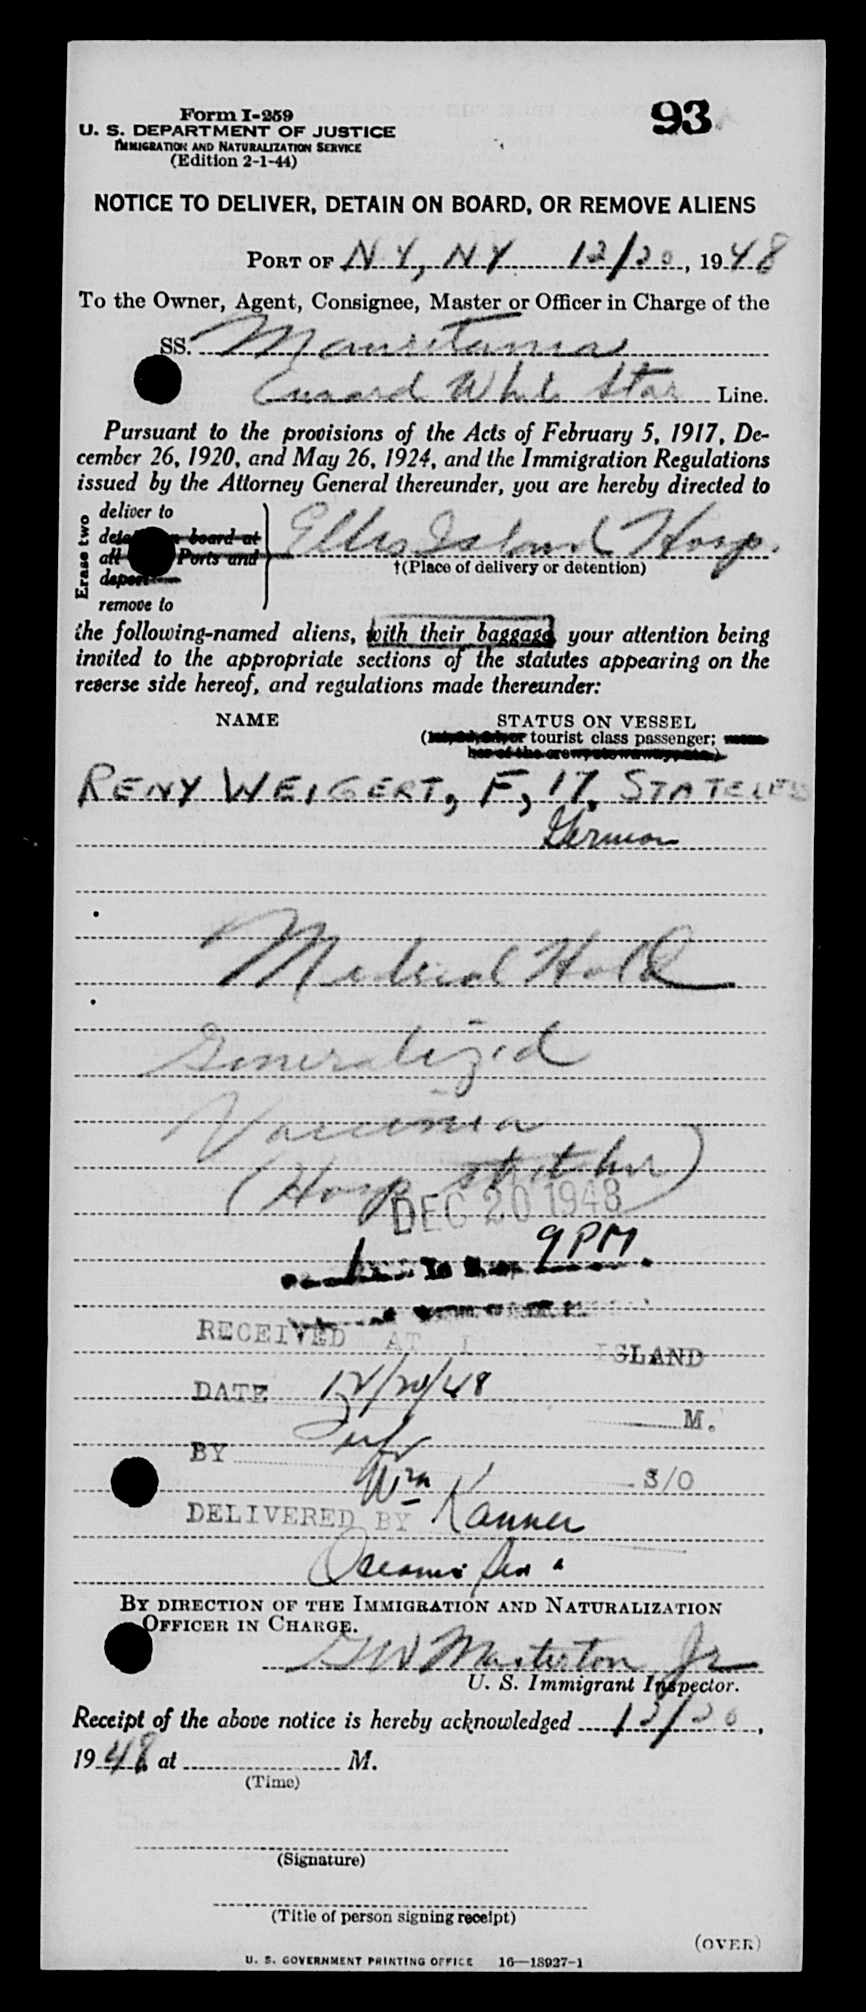 93
Form I-259
U. S. DEPARTMENT OF JUSTICE
IMMIGRATION AND NATURALIZATION SERVICE
(Edition 2-1-44)
NOTICE TO DELIVER, DETAIN ON BOARD, OR REMOVE ALIENS
PORT OF N.Y., N.Y. 12/20, 1948
To the Owner, Agent, Consignee, Master or Officer in Charge of the
SS. Mauretania
Cunard White Star Line.
Pursuant to the provisions of the Acts of February 5, 1917, De-
cember 26, 1920, and May 26, 1924, and the Immigration Regulations
issued by the Attorney General thereunder, you are hereby directed to
Erase two
deliver to
board at
all Ports and
deport
remove to
Ellis Island Hosp.
†(Place of delivery or detention)
the following-named aliens, with their baggage, your attention being
invited to the appropriate sections of the statutes appearing on the
reverse side hereof, and regulations made thereunder:
NAME STATUS ON VESSEL
( tourist class passenger;
RENY WEIGERT, F, 17, STATELES
German
Medical Hold
Generalized
Vaccinia
(Hosp stretcher)
DEC 20 1948
9 PM
RECEIVED AT ISLAND
DATE 12/20/48
M.
BY
S/O
Wm
DELIVERED BY Kanner
BY DIRECTION OF THE IMMIGRATION AND NATURALIZATION
OFFICER IN CHARGE.
GW Masterton Jr
U. S. Immigrant Inspector.
Receipt of the above notice is hereby acknowledged 12/20,
1948 at M.
(Time)
(Signature)
(Title of person signing receipt)
(OVER)
U. S. GOVERNMENT PRINTING OFFICE 16—18927-1